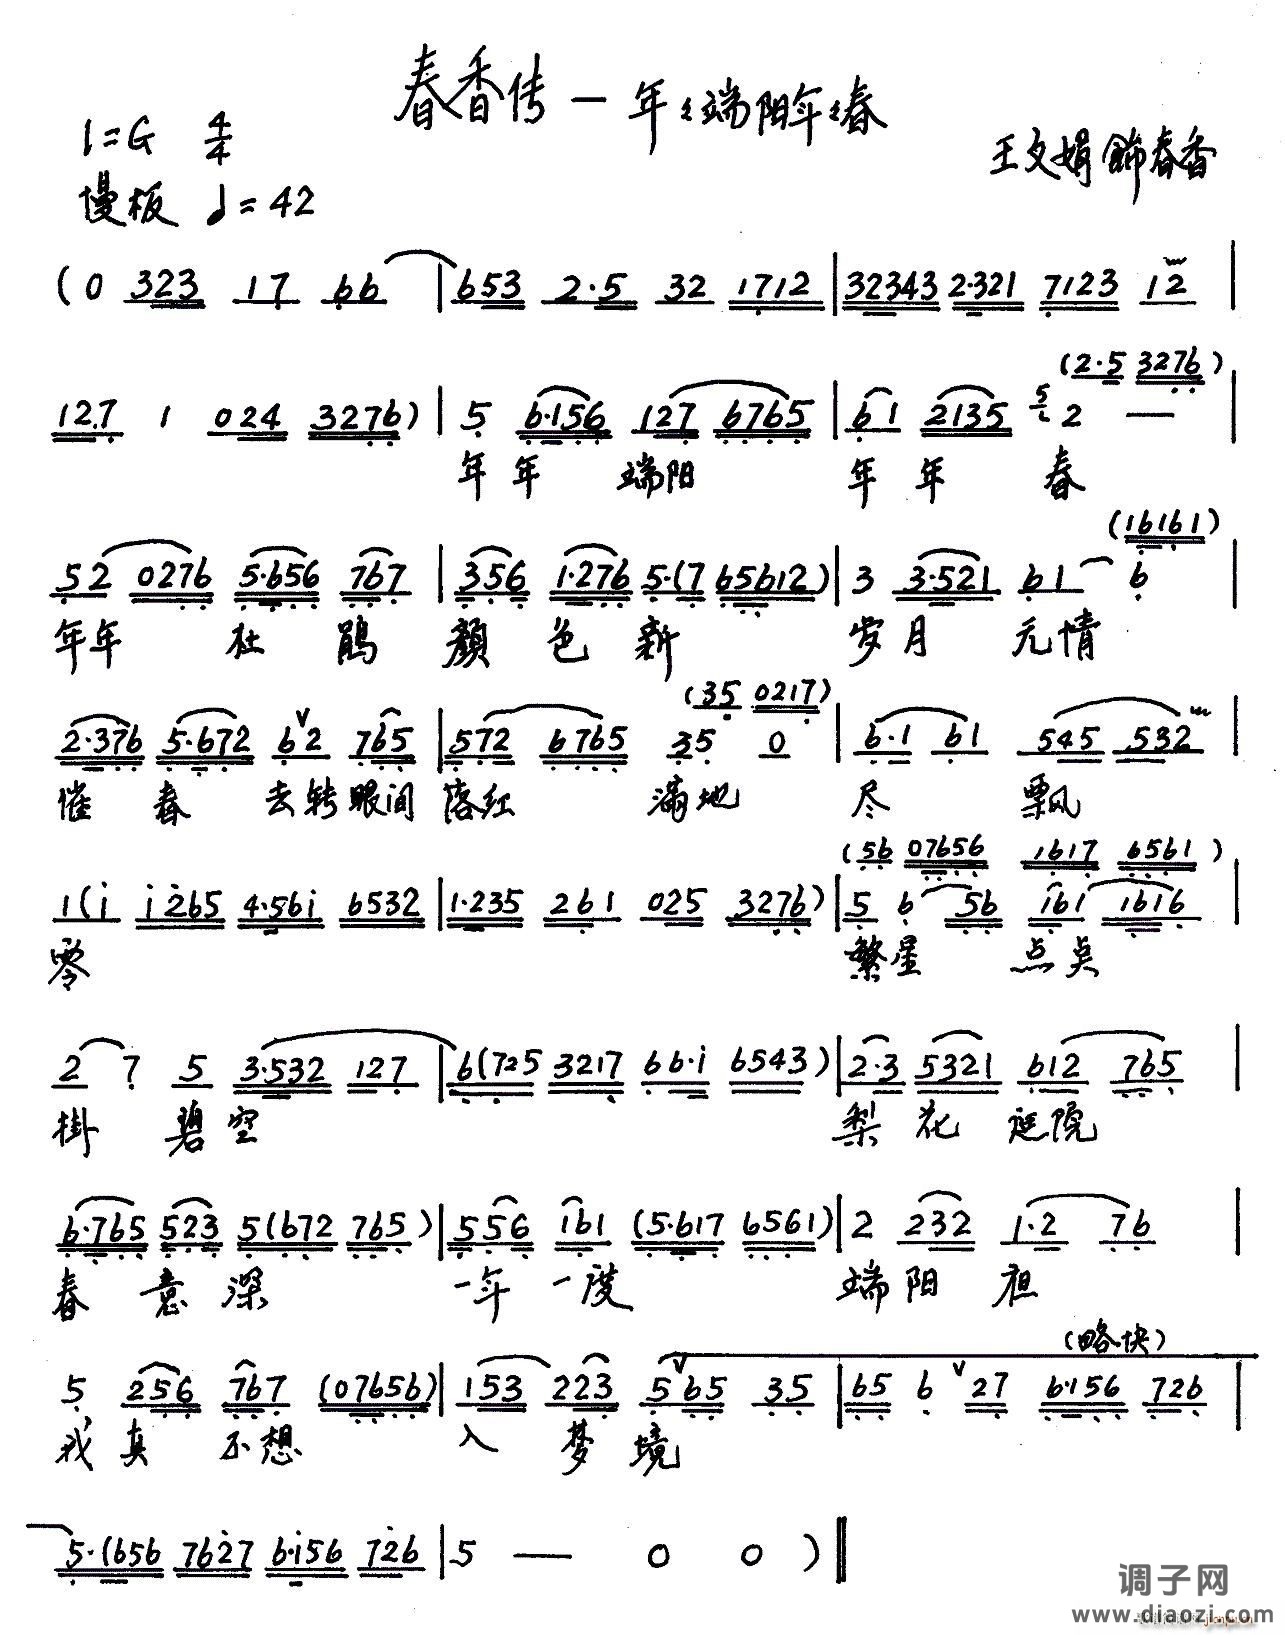 春香传—年々端阳年々春
1=G 4/4
王文娟饰春香
慢板 ♩=42
(0 323 17 66 | 653 2·5 32 1712 | 32343 2·321 7123 12 |
(2·5 3276)
127 1 024 3276) | 5 6·156 127 6765 | 61 2135 2 — |
年年 端阳 年年 春
(16161)
52 0276 5·656 767 | 356 1·276 5·(7 65612) | 3 3·521 61 6 |
年年 杜鹃 颜色新 岁月无情
(35 0217)
2·376 5·672 6 2 765 | 572 6765 35 0 | 6·1 61 545 532 |
催春去转眼间落红 满地 尽 飘
(56 07656 1617 6561)
1(i i265 4·56i 6532 | 1·235 261 025 3276) | 5 6 56 161 1616 |
零 繁星 点点
2 7 5 3·532 127 | 6(725 3217 66·i 6543) | 2·3 5321 612 765 |
掛 碧空 梨花 庭院
6·765 523 5(672 765) | 556 161 (5·617 6561) | 2 232 1·2 76 |
春意深 一年一度 端阳祖
(略快)
5 256 767 (07656) | 153 223 5 65 35 | 65 6 27 6·156 726 |
我真 不想 入梦境
5·(656 7627 6·i56 726 | 5 — 0 0 )‖
调子网
www.diaozi.com